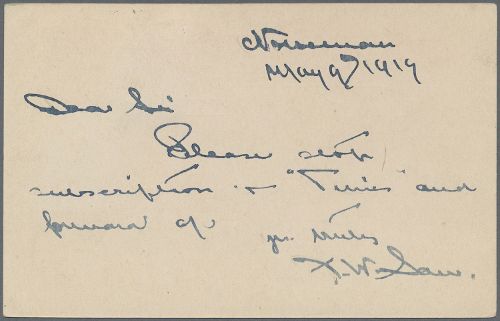 Norseman
May 9/1919
Dear Sir
Please stop
subscription to "Times" and
forward a/c
yrs truly
W. Law.